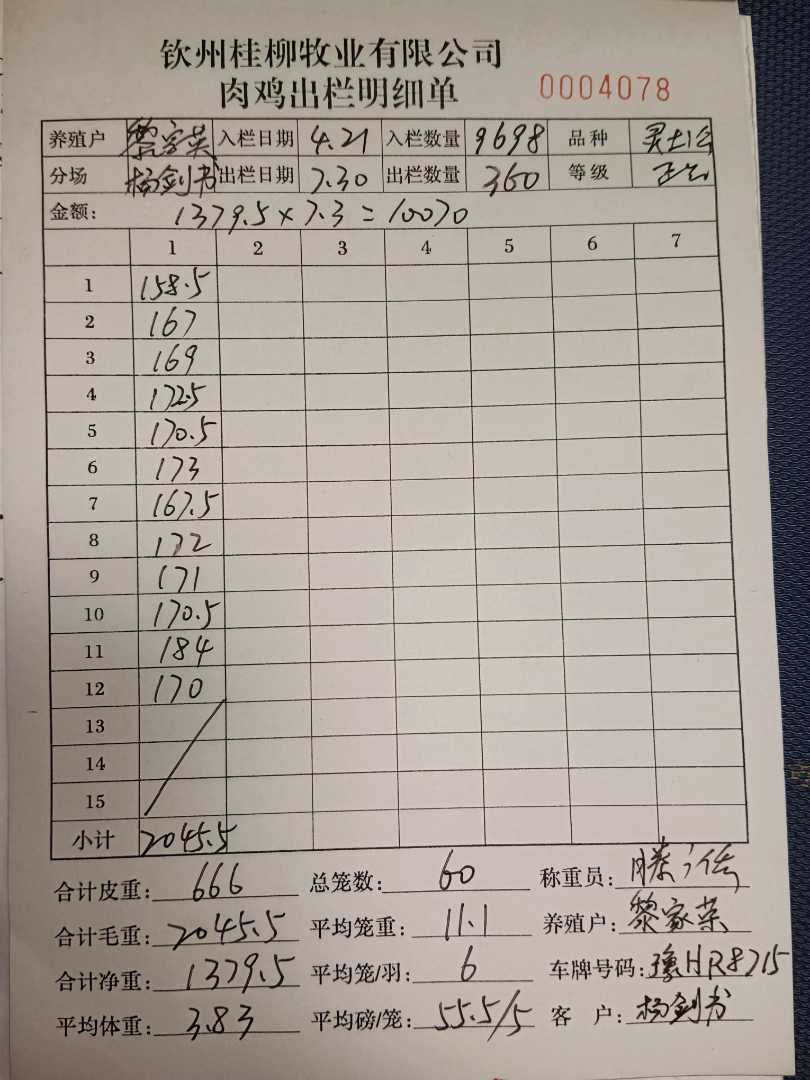 钦州桂柳牧业有限公司
肉鸡出栏明细单 0004078
养殖户 黎家英 入栏日期 4.21 入栏数量 9698 品种 灵土公
分场 杨剑书 出栏日期 7.30 出栏数量 360 等级 正公
金额: 1379.5×7.3=10070
1 2 3 4 5 6 7
1 158.5
2 167
3 169
4 172.5
5 170.5
6 173
7 167.5
8 172
9 171
10 170.5
11 184
12 170
13
14
15
小计 2045.5
合计皮重: 666 总笼数: 60 称重员:
合计毛重: 2045.5 平均笼重: 11.1 养殖户: 黎家英
合计净重: 1379.5 平均笼/羽: 6 车牌号码: 豫HR8715
平均体重: 3.83 平均磅/笼: 55.5/5 客 户: 杨剑书